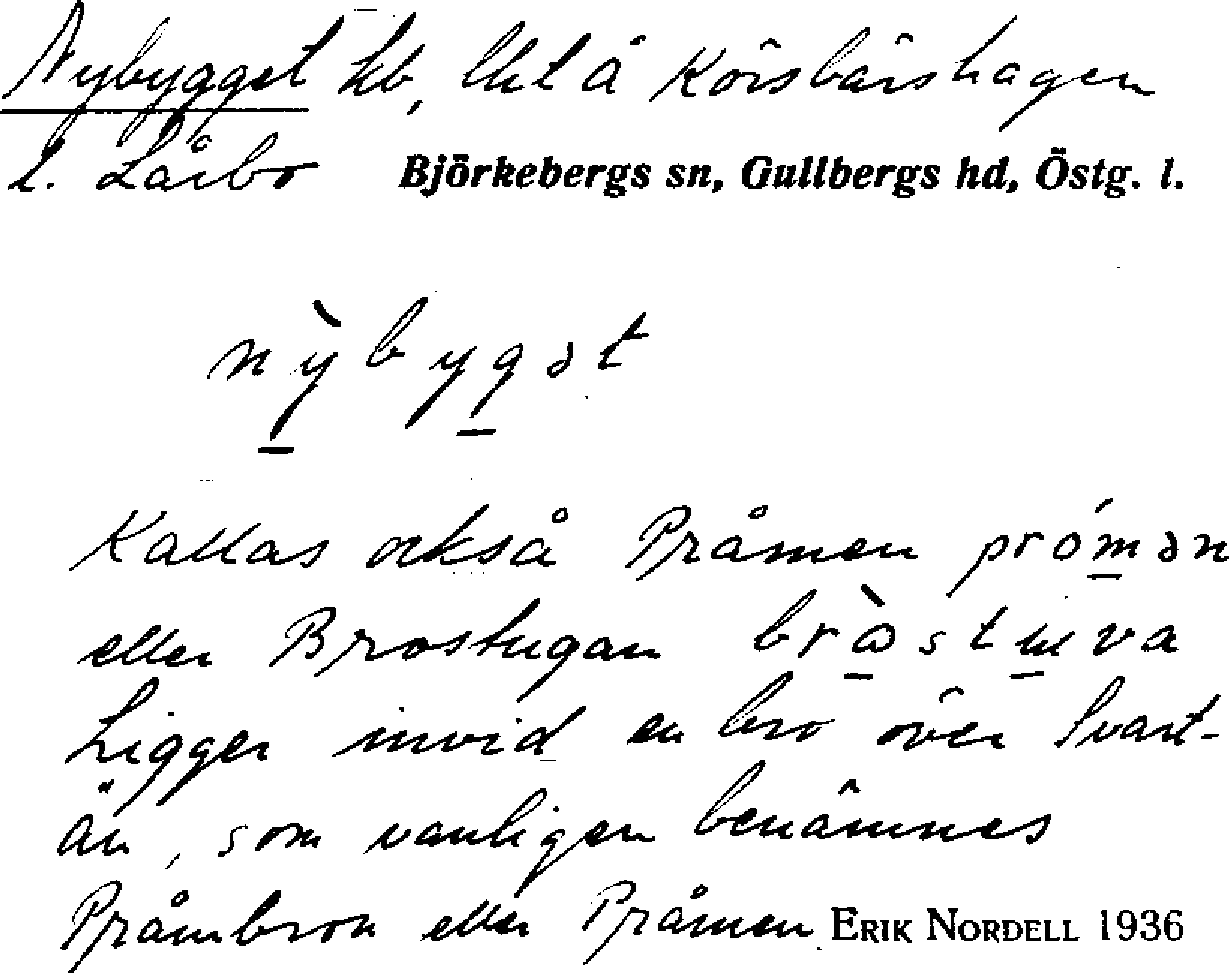 Nybygget hb, lht å Körsbärshagen
l. Låibo Björkebergs sn, Gullbergs hd, Östg. l.
nỳbygət
Kallas också Pråmen prómən
eller Brostugan bròstuva
Ligger invid en bro över Svart-
ån, som vanligen benämnes
Pråmbron eller Pråmen ERIK NORDELL 1936